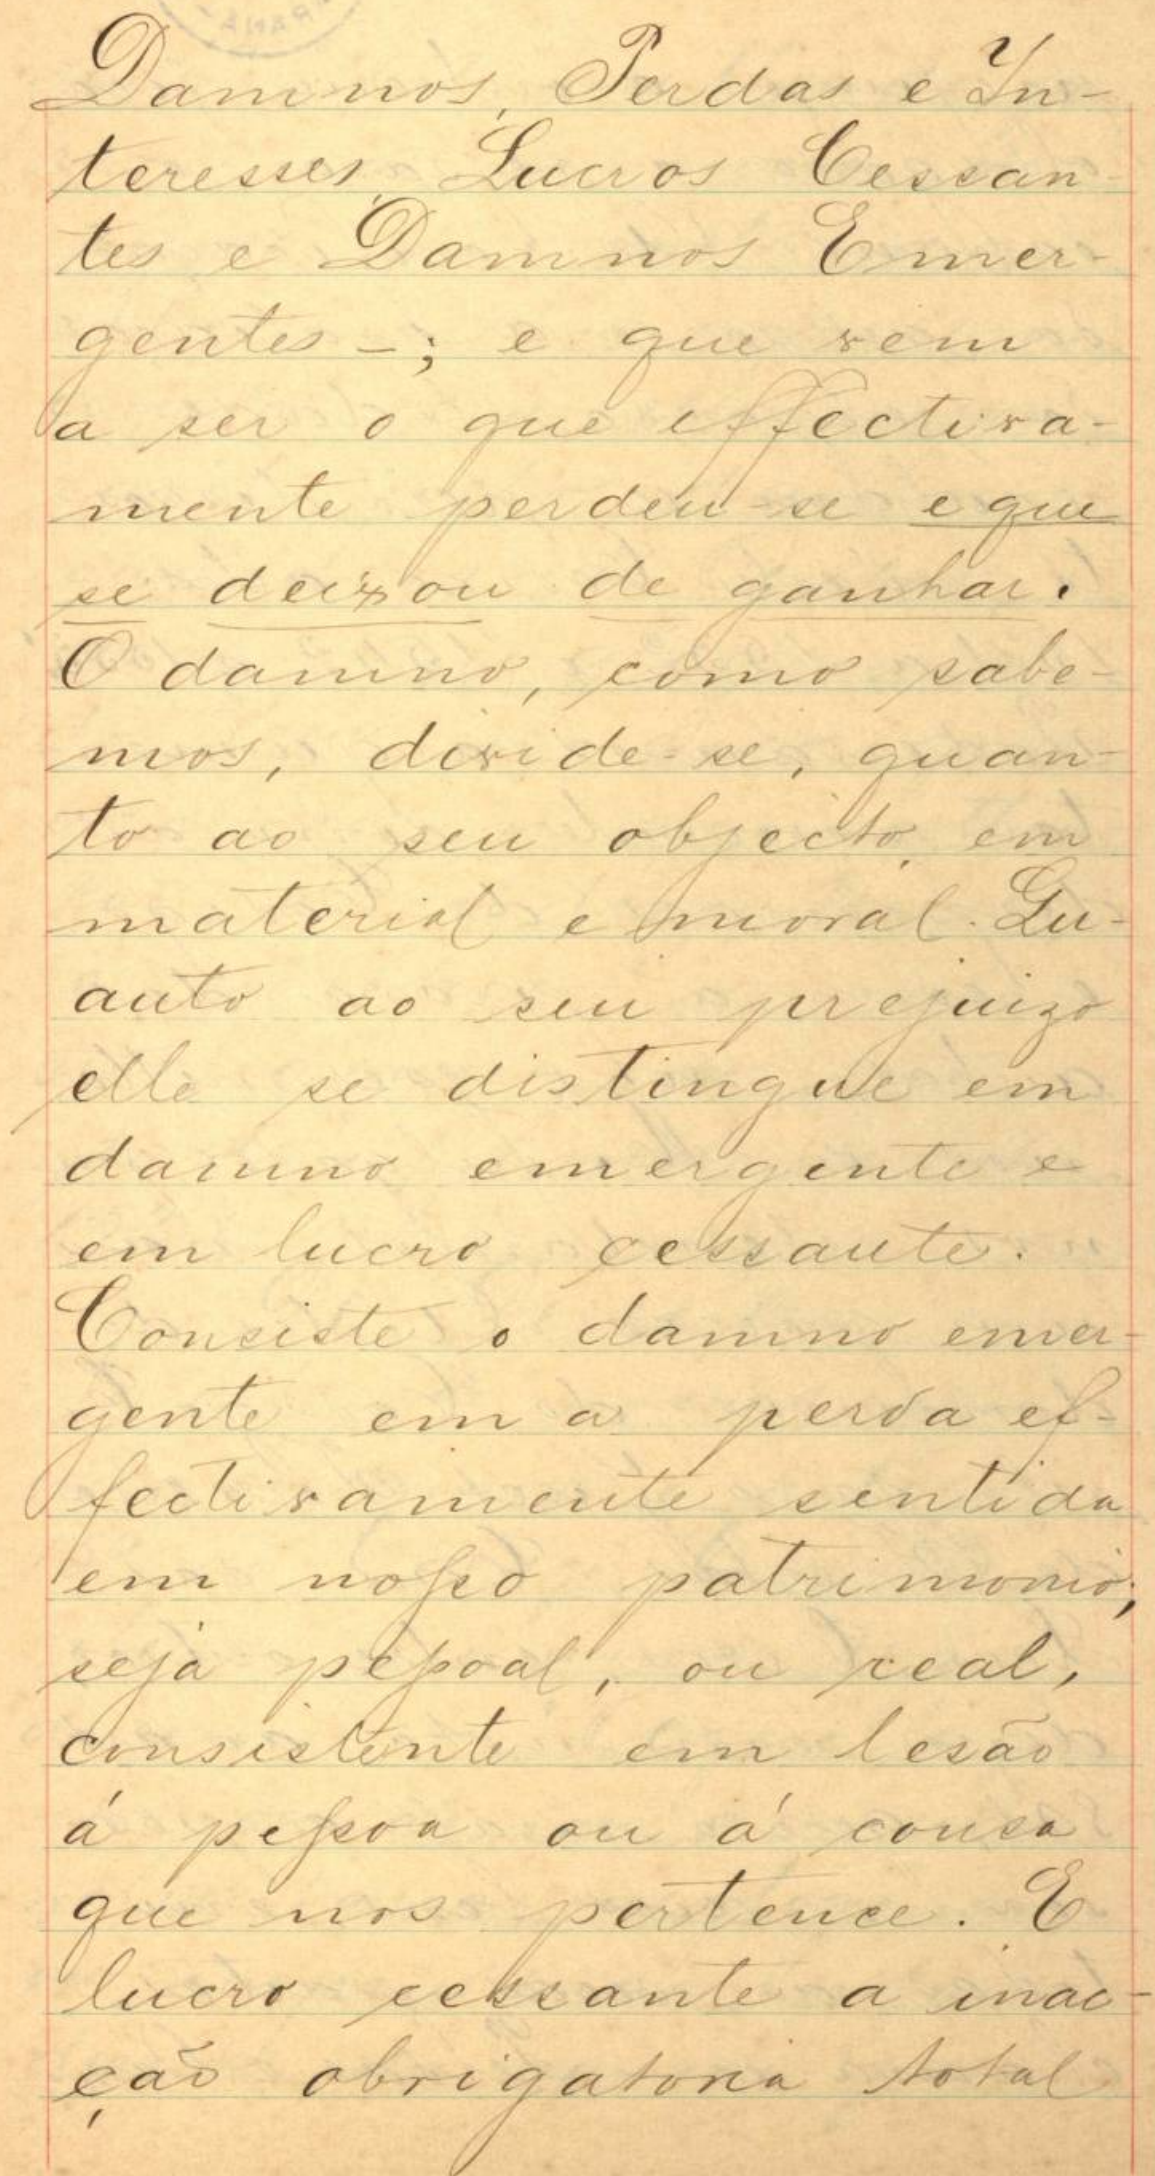 Damnos, Perdas e In-
teresses, Lucros Cessan
tes e Damnos Emer-
gentes -; e que vem
a ser o que effectiva-
mente perdeu-se e que
se deixou de ganhar.
O damno, como sabe-
mos, divide-se, quan-
to ao seu objecto, em
material e moral. Qu-
anto ao seu prejuizo
elle se distingue em
damno emergente e
em lucro cessante.
Consiste o damno emer-
gente em a perda ef-
fectivamente sentida
em nosso patrimonio;
seja pessoal, ou real,
consistente em lesão
á pessoa ou á cousa
que nos pertence. E
lucro cessante a inac-
ção obrigatoria total